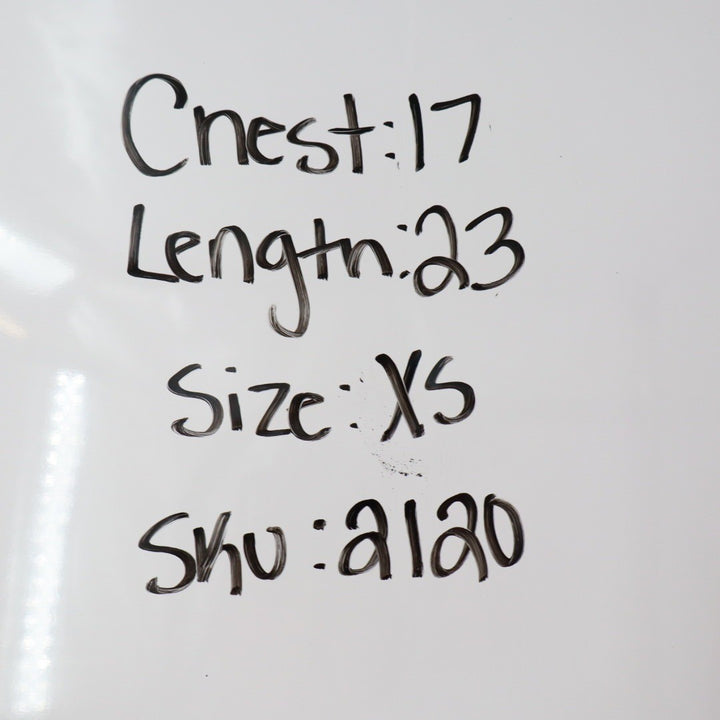 Chest:17
Length:23
Size:XS
SKU:2120